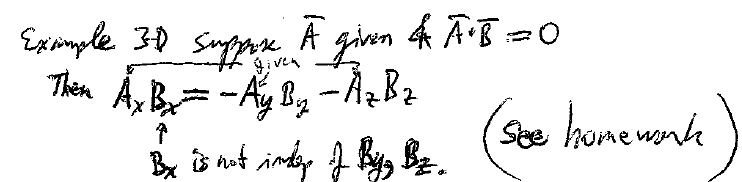 Example 3-D suppose A̅ given & A̅·B̅ = 0
given
Then AₓBₓ = -A_y B_y - A_z B_z
Bₓ is not indep of B_y, B_z.
(see homework)